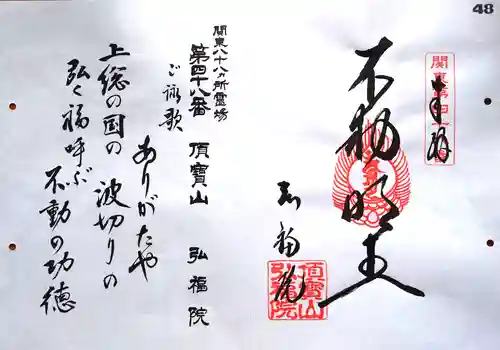 48
奉拝
不動明王
弘福院
頂寶山
弘福院
関東八十八ヵ所霊場
第四十八番 頂寶山 弘福院
ご詠歌
ありがたや
上総の国の 波切りの
弘く福呼ぶ 不動の功徳